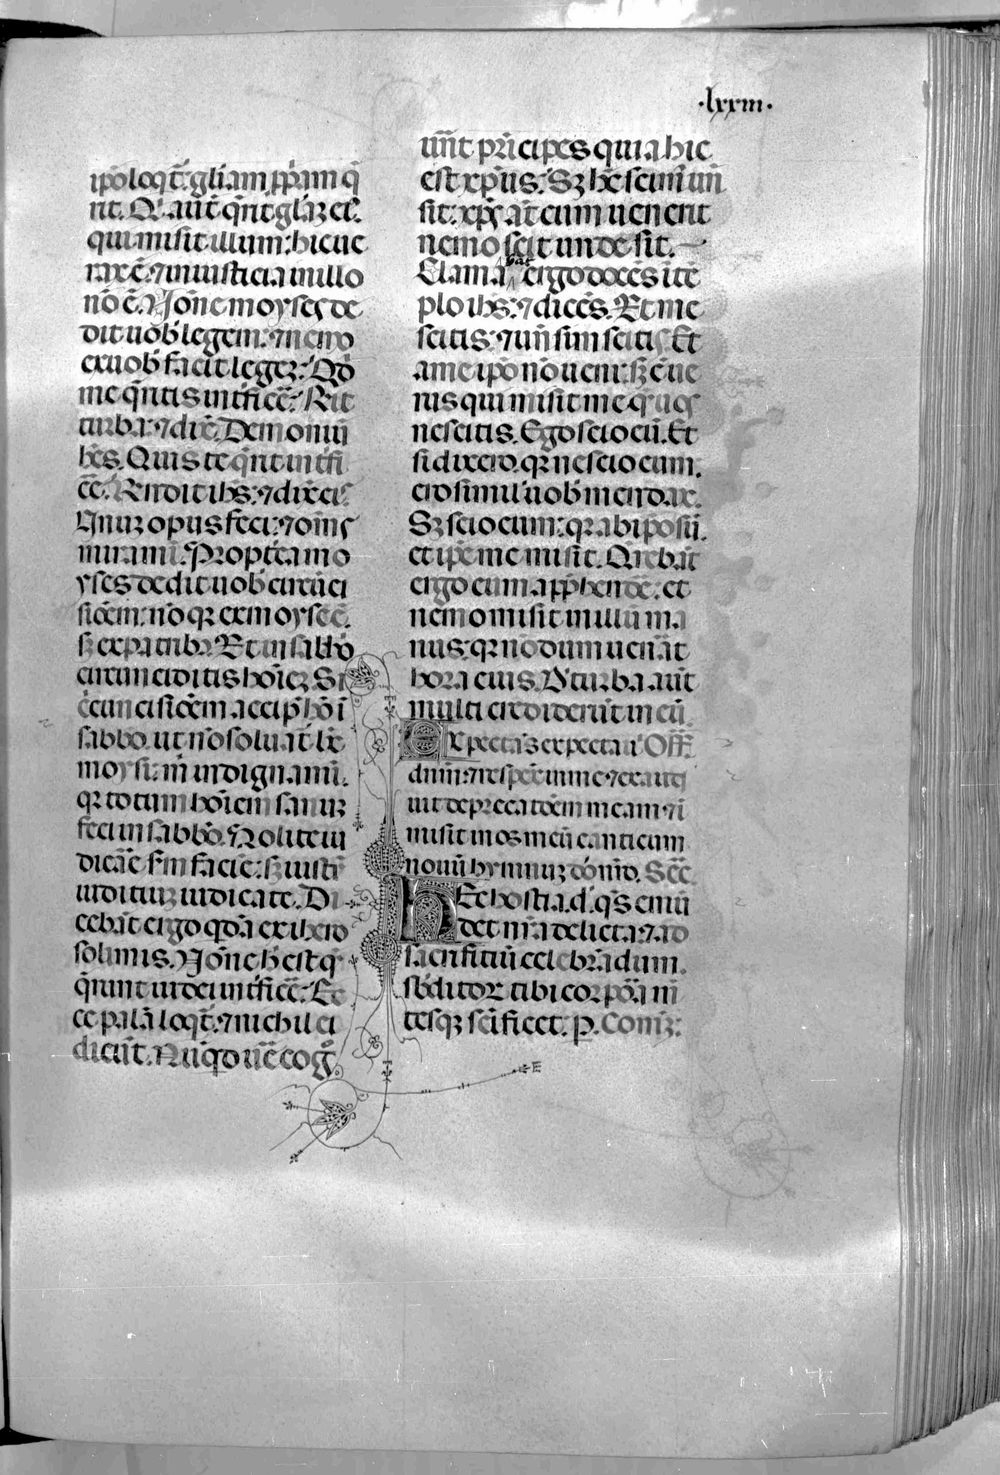 ·lxxiii·
ip̃o loqt̃. gl̃iam ꝓp̃am q̃
rit. Qͥ aut̃ q̃rit gl̃aꝫ eiꝰ.
qui misit illum: hic ue
rax ẽ. ⁊ iniusticia in illo
nõ ẽ. Nõne moyses de
dit uob̃ legem: ⁊ nemo
ex uob̃ facit legeꝫ: Qͥd
me q̃ritis int̃ficẽ: R̃it
turba ⁊ dix̃. Demoniũ
hẽs. Quis te q̃rit int̃fi
cẽ. R̃ndit ihs̃: ⁊ dix̃ eis.
Unuꝫ opus feci: ⁊ om̃s
miramĩ. Propt̃ea mo
yses dedit uob̃ circũci
siõem: nõ qꝛ ex moyse ẽ.
sꝫ ex patrib: Et in sabb̃o
circumciditis hoĩeꝫ. Si
c̃cumcisiõem accip̃ hõ ĩ
sabbo. ut nõ soluat̃ lex
moysi: m̃ indignamĩ.
qꝛ totum hoĩem sanuꝫ
feci in sabb̃o. Nolite iu
dicãe s̃m faciẽ: sꝫ iustũ
iudiciuꝫ iudicate. Di
cebãt ergo qͥdã ex ihero
solimis. Nõne h̃ est q̃
q̃runt iudei int̃ficẽ: Ec
ce palã loqt̃: ⁊ nichil ei
dicũt. Nũqͥd uẽ cog̃
uũnt p̃ncipes quia hic
est xp̃us: Sꝫ hc̃ scimꝰ uñ
sit: xp̃c at̃ cum uenerit
nemo scit unde sit.
Clamabat ergo docẽs ĩ tẽ
plo ihs̃: ⁊ dicẽs. Et me
scitis: ⁊ uñ sim scitis Et
a me ip̃o nõ ueni: sꝫ ẽ ue
rus qui misit me quẽ uos
nescitis. Ego scio eũ. Et
si dixero. qꝛ nescio eum.
ero similꝰ uob̃ mendax.
Sꝫ scio eum: qꝛ ab ip̃o sũ.
et ip̃e me misit. Q̃rebãt
ergo eum app̃hendẽ: et
nemo misit in illũ ma
nus: qꝛ nõdum uenãt
hora eius. Dͤ turba aut̃
multi crediderũt in eũ.
Expectãs expectaui Off̃
dnm̃: ⁊ respex̃it in me ⁊ exaudi
uit deprecatõem meam: ⁊ ĩ
misit in os meũ canticum
nouũ hymnuꝫ dõ nr̃o. Sec̃.
Hec hostia. d. q̃s emũ
det nr̃a delicta: ⁊ ad
sacrificiũ celebrãdum.
sb̃ditoꝝ tibi corpõa m̃
tesqꝫ sc̃ificet. p̃. Com̃ꝫ: